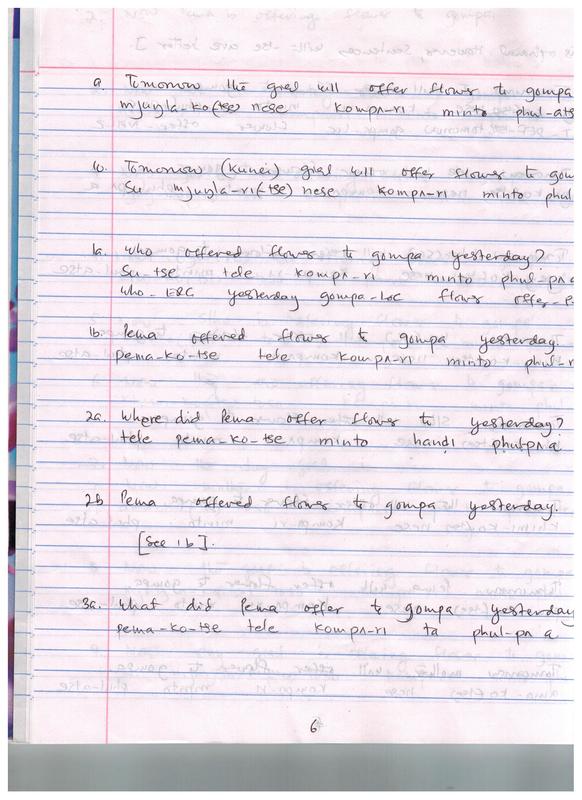 a. Tomorrow the girl will offer flowers to gompa
mjuŋla-ko(tse) nese kompʌ-ri minto phul-ats
b. Tomorrow (Kunei) girl will offer flowers to gom
Su mjuŋla-ri(-tse) nese kompʌ-ri minto phul
1a. Who offered flowers to gompa yesterday?
Su-tse tele kompʌ-ri minto phul-pʌ a
Who-ERG yesterday gompa-LOC flowers offer-P
1b. Pema offered flowers to gompa yesterday.
pema-ko-tse tele kompʌ-ri minto phul-
2a. Where did Pema offer flowers to yesterday?
tele pema-ko-tse minto phul-pʌ a
2b Pema offered flowers to gompa yesterday.
[See 1b].
3a. What did Pema offer to gompa yesterday
pema-ko-tse tele kompʌ-ri ta phul-pʌ a
6